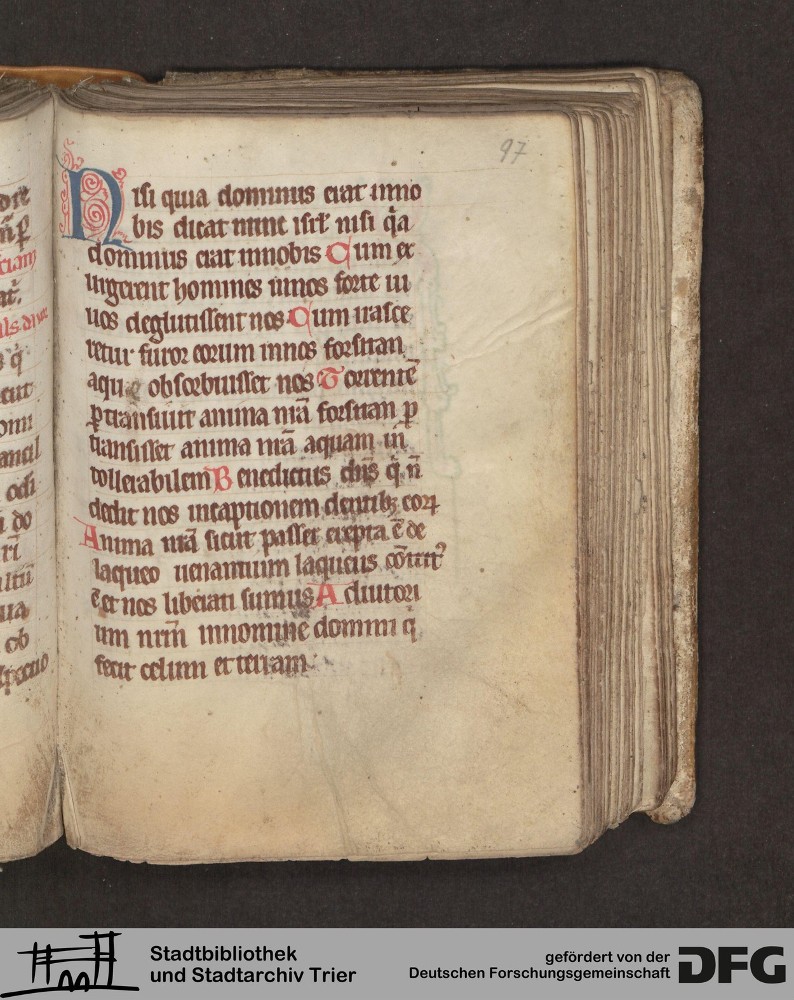 97
Nisi quia dominus erat inno
bis dicat nunc isrł nisi q̃a
dominus erat innobis Cum ex
urgerent homines innos forte ui
uos deglutissent nos Cum irasce
retur furor eorum innos forsitan
aqua obsorbuisset nos Torrentē
ꝑtransiuit anima nr̃a forsitan ꝑ
transisset anima nr̃a aquam in̄
tollerabilem Benedictus dn̄s q̇ n̄
dedit nos incaptionem dentibꝫ eoꝝ
Anima nr̃a sicut passer erepta ē de
laqueo uenantium laqueus cōtrit᾽
ē et nos liberati sumus Adiutori
um nr̄m innomine domini q̇
fecit celum et terram
Stadtbibliothek
und Stadtarchiv Trier
gefördert von der
Deutschen Forschungsgemeinschaft
DFG